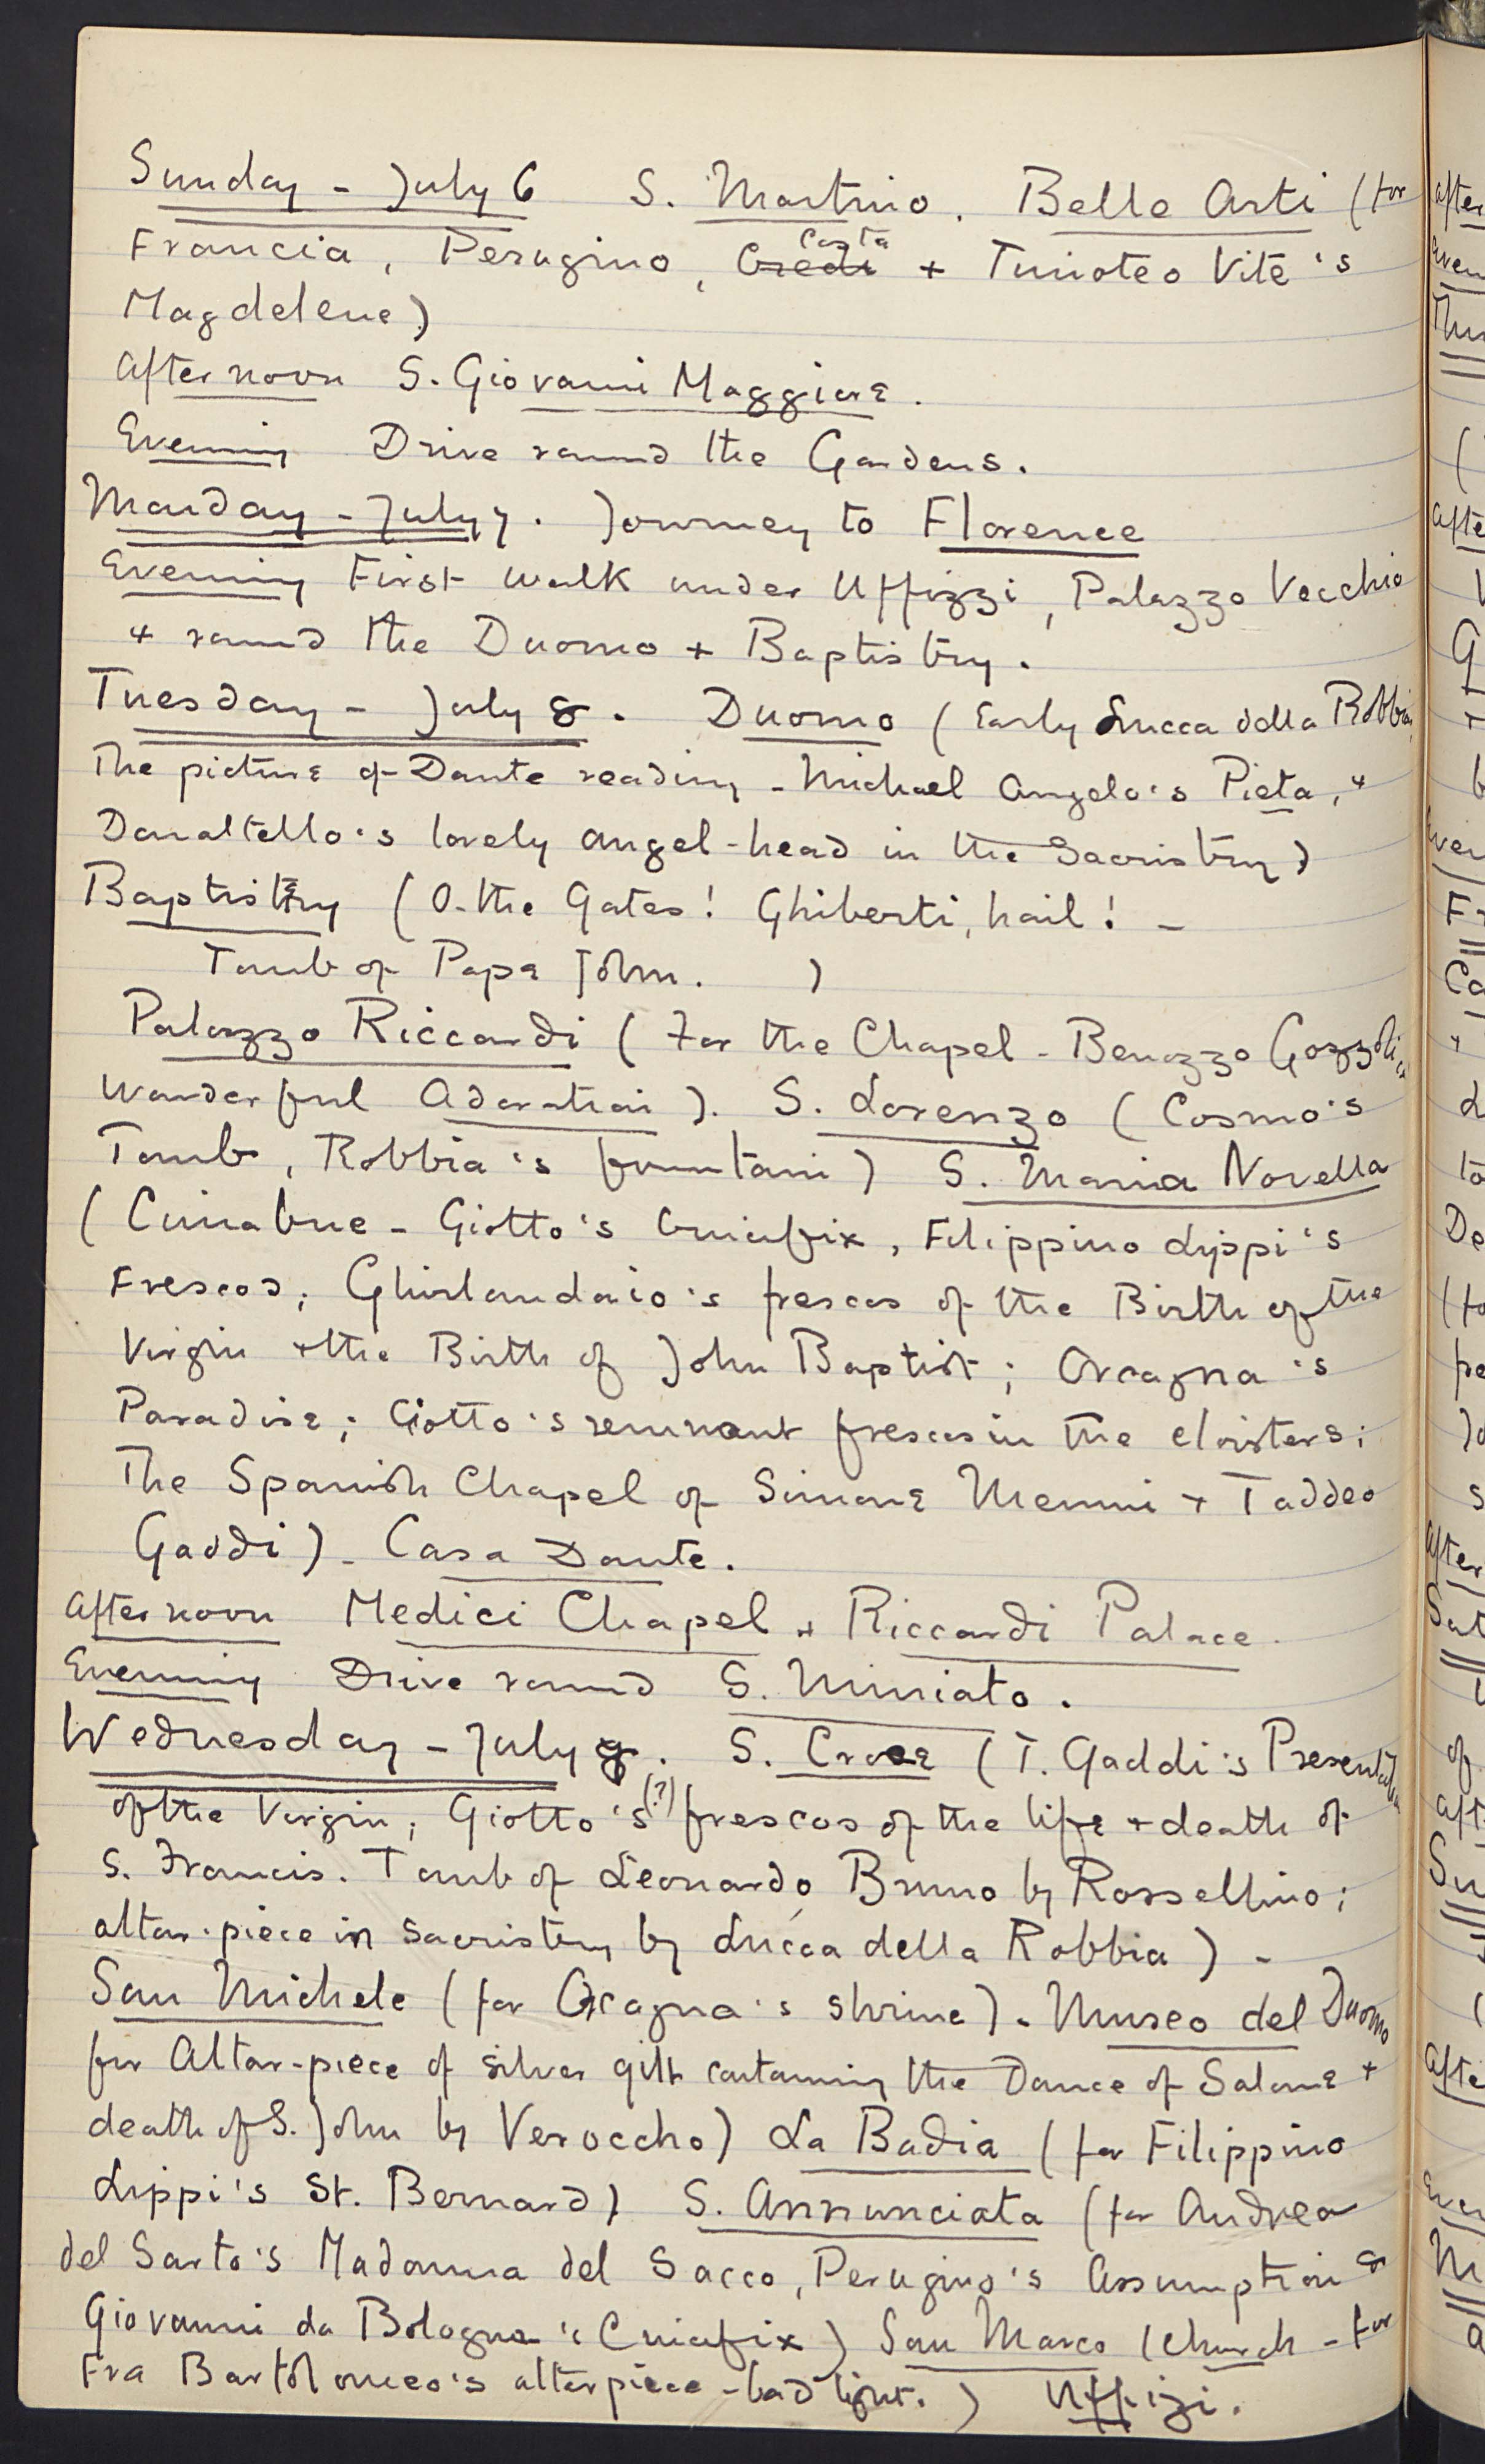 Sunday - July 6 S. Martino. Belle Arti (for
Francia, Perugino, Credi Costa + Timoteo Vite's
Magdelene)
Afternoon S. Giovanni Maggiore.
Evening Drive round the Gardens.
Monday - July 7. Journey to Florence
Evening First walk under Uffizzi, Palazzo Vecchio
+ round the Duomo + Baptistry.
Tuesday - July 8. Duomo (Early Lucca della Robbia,
The picture of Dante reading - Michael Angelo's Pieta, +
Donaltello's lovely angel-head in the Sacristry)
Baptistry (O-the Gates! Ghiberti, hail! -
Tomb of Pope John. )
Palazzo Riccardi (For the Chapel - Benozzo Gozzoli's
Wonderful Adoration). S. Lorenzo (Cosmo's
Tomb, Robbia's fountain) S. Maria Novella
(Cimabue - Giotto's Crucifix, Filippino Lippi's
Frescos; Ghirlandaio's frescos of the Birth of the
Virgin + the Birth of John Baptist; Orcagna's
Paradise; Giotto's remnant frescos in the cloisters;
The Spanish Chapel of Simone Memmi + Taddeo
Gaddi) - Casa Dante.
Afternoon Medici Chapel + Riccardi Palace.
Evening Drive round S. Miniato.
Wednesday - July 9. S. Croce (T. Gaddi's Presentation
of the Virgin; Giotto's (?) frescos of the life + death of
S. Francis. Tomb of Leonardo Bruno by Rossellino;
altar-piece in Sacristry by Lucca della Robbia) -
San Michele (for Orcagna's shrine) - Museo del Duomo
for Altar-piece of silver gilt containing the Dance of Salome +
death of S. John by Veroccho) La Badia (for Filippino
Lippi's St. Bernard) S. Annunciata (for Andrea
del Sarto's Madonna del Sacco, Perugino's Assumption &
Giovanni da Bologna's Crucifix) San Marco (church - for
Fra Bartolomeo's alterpiece - bad light.) Uffizi.